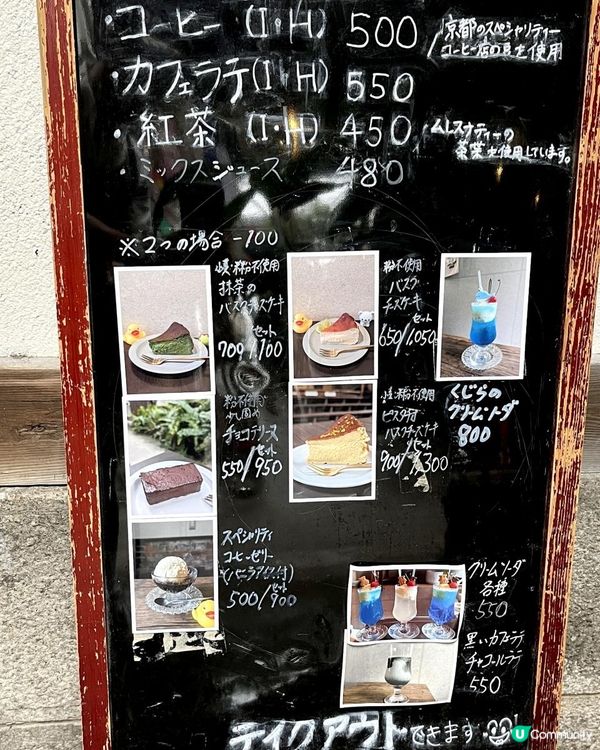 ・コーヒー (I・H) 500
京都のスペシャリティー
コーヒー店の豆を使用
・カフェラテ(I・H) 550
・紅茶 (I・H) 450
ムレスナティーの
茶葉を使用しています。
・ミックスジュース 480
※2つの場合 -100
抹茶の
バスクチーズケーキ
セット
700/1,100
粉不使用
バスク
チーズケーキ
セット
650/1,050
くじらの
クリームソーダ
800
粉不使用
チョコテリーヌ
セット
550/950
ピスタチオ
バスクチーズケーキ
セット
900/1,300
スペシャリティ
コーヒーゼリー
(バニラアイス付)
セット
500/900
クリームソーダ
各種
550
黒いカフェラテ
チャコールラテ
550
テイクアウトできます
U Community